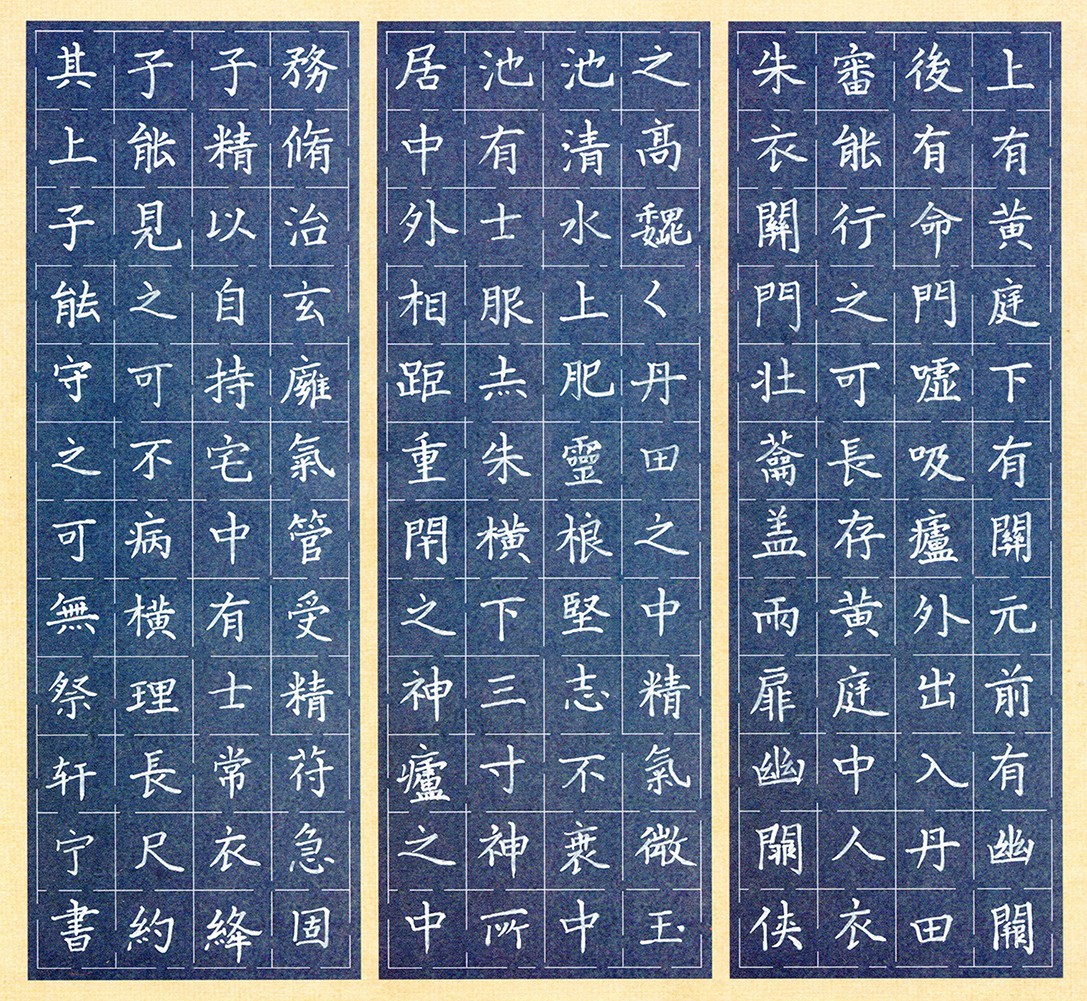 上有黄庭下有關元前有幽闕
後有命門嘘吸廬外出入丹田
審能行之可長存黄庭中人衣
朱衣關門壮蘥盖兩扉幽闕侠
之髙巍く丹田之中精氣微玉
池清水上肥靈根堅志不衰中
池有士服赤朱横下三寸神所
居中外相距重閇之神廬之中
務脩治玄廱氣管受精苻急固
子精以自持宅中有士常衣絳
子能見之可不病横理長尺約
其上子能守之可無祭轩宁書